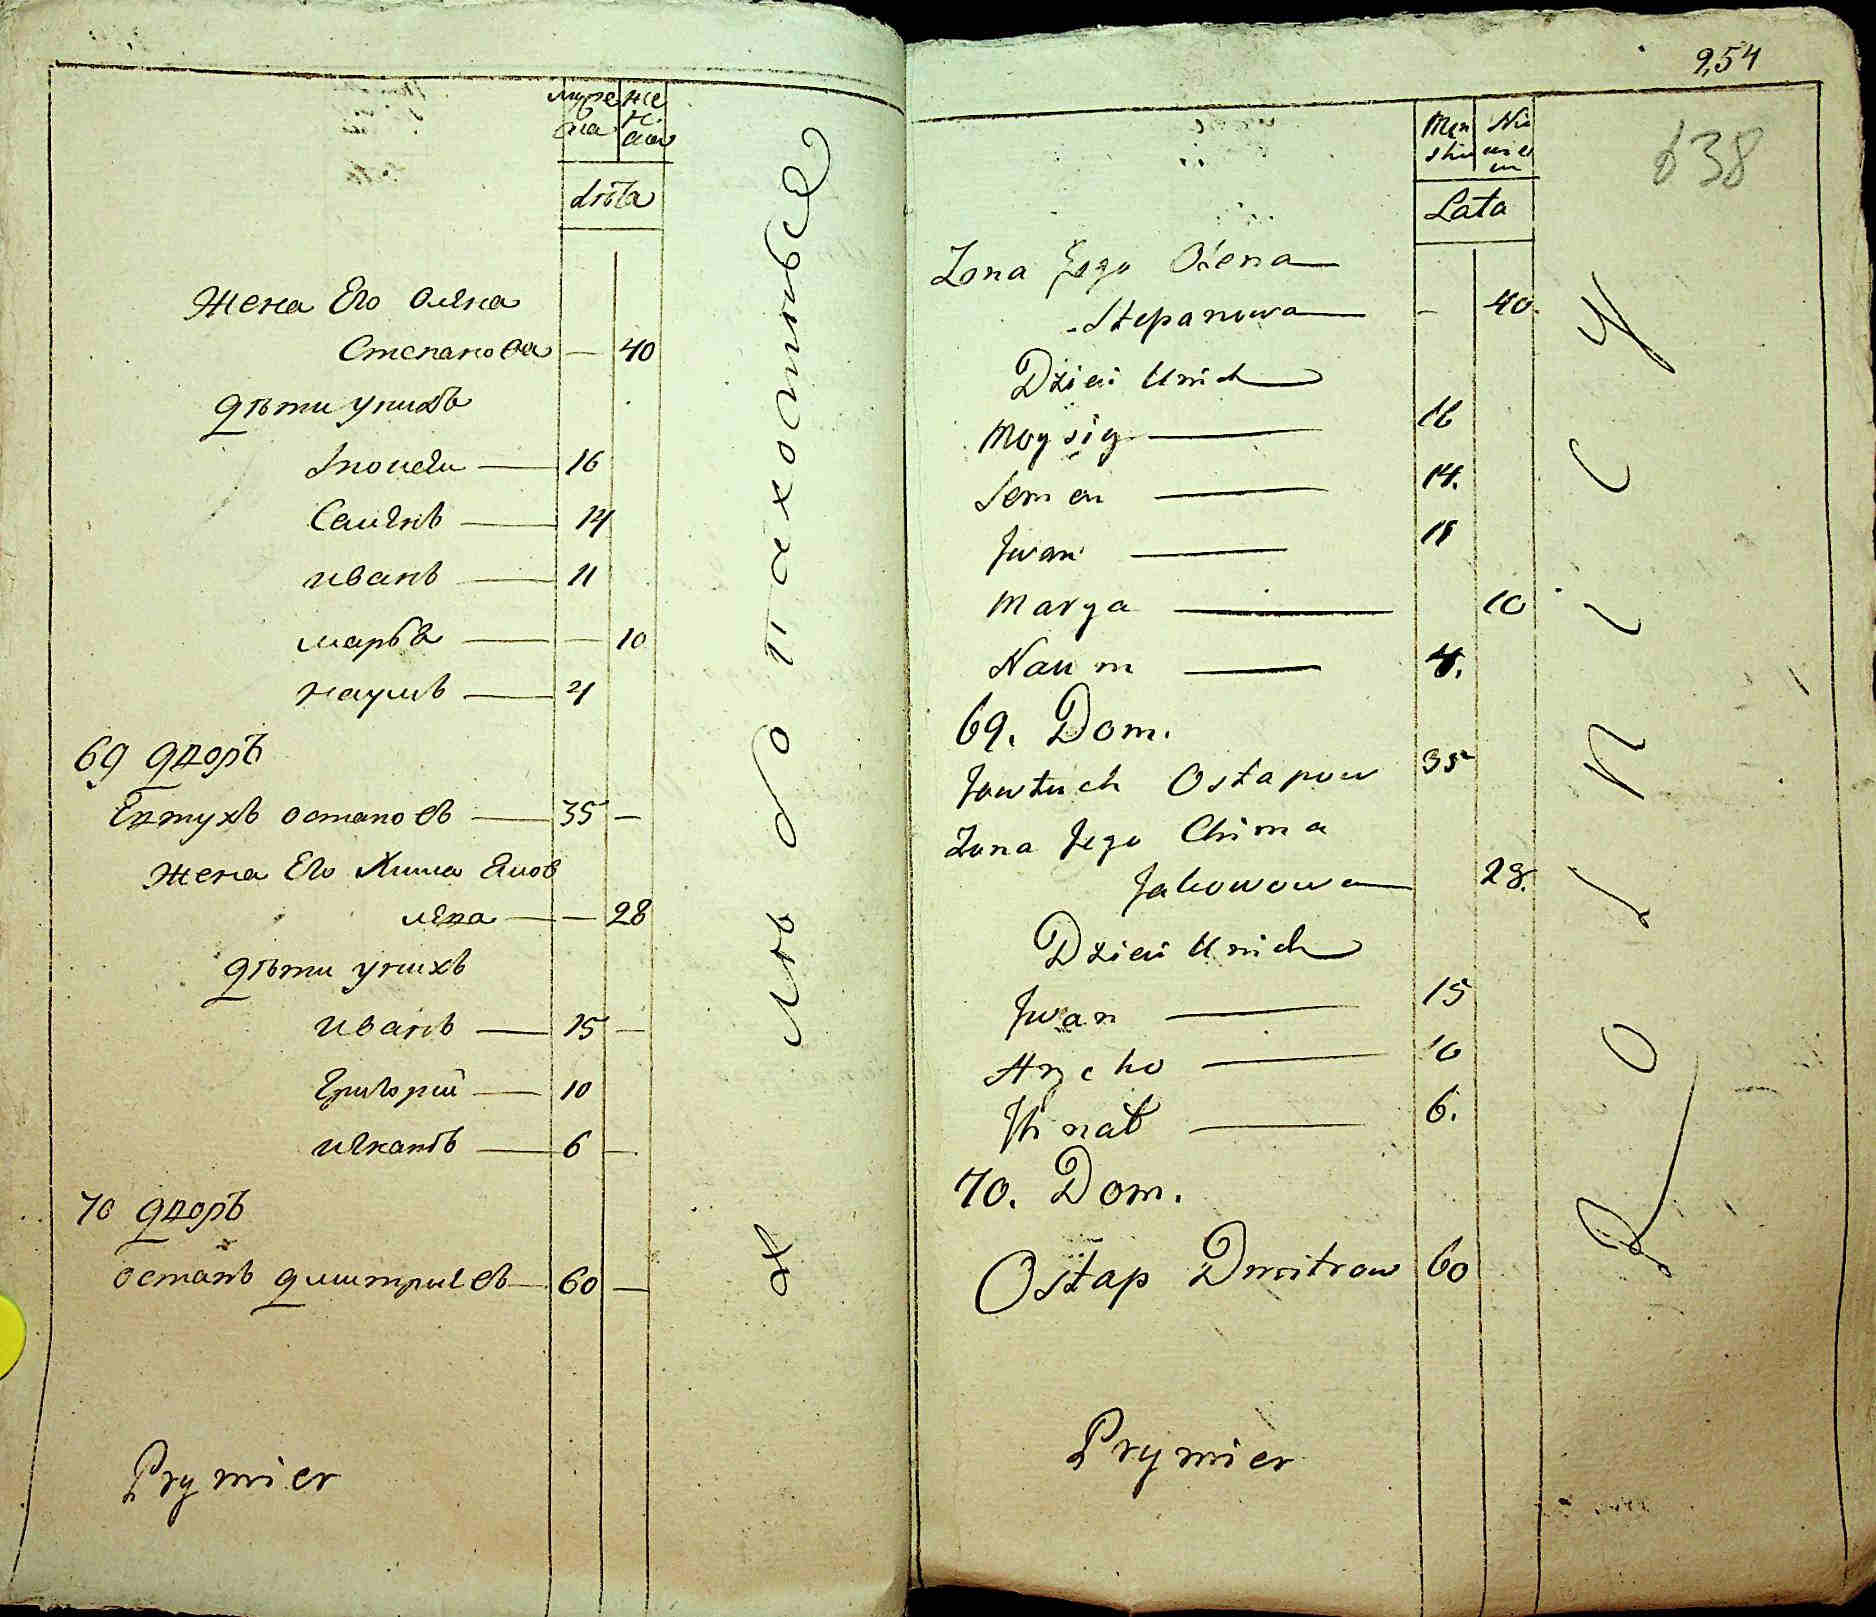 муже
ска
же
н
ска
лѣта
Жена Его олена
Степанова — 40
дѣти унихъ
Моисеи — 16
Семенъ — 14
иванъ — 11
марья — — 10
наумъ — 4
69 дворъ
Евтухъ остаповъ — 35 —
Жена Его Хима Яков
лева — — 28
дѣти унихъ
иванъ — 15 —
Григорий — 10
игнатъ — 6 —
70 дворъ
остапъ дмитриевъ — 60 —
Prymier
254
638
Męz
skie
Nie
wies
cie
Lata
Zona Jego Olena
Stepanowa — 40.
Dzieci Unich
Moysiy — 16
Semen — 14.
Jwan — 11
Marya — 10
Naum — 4.
69. Dom.
Jowtuch Ostapow 35
Zona Jego Chima
Jakowowa 28.
Dzieci Unich
Jwan — 15
Hrycko — 10
Jhnat — 6.
70. Dom.
Ostap Dmitrow 60
Prymier